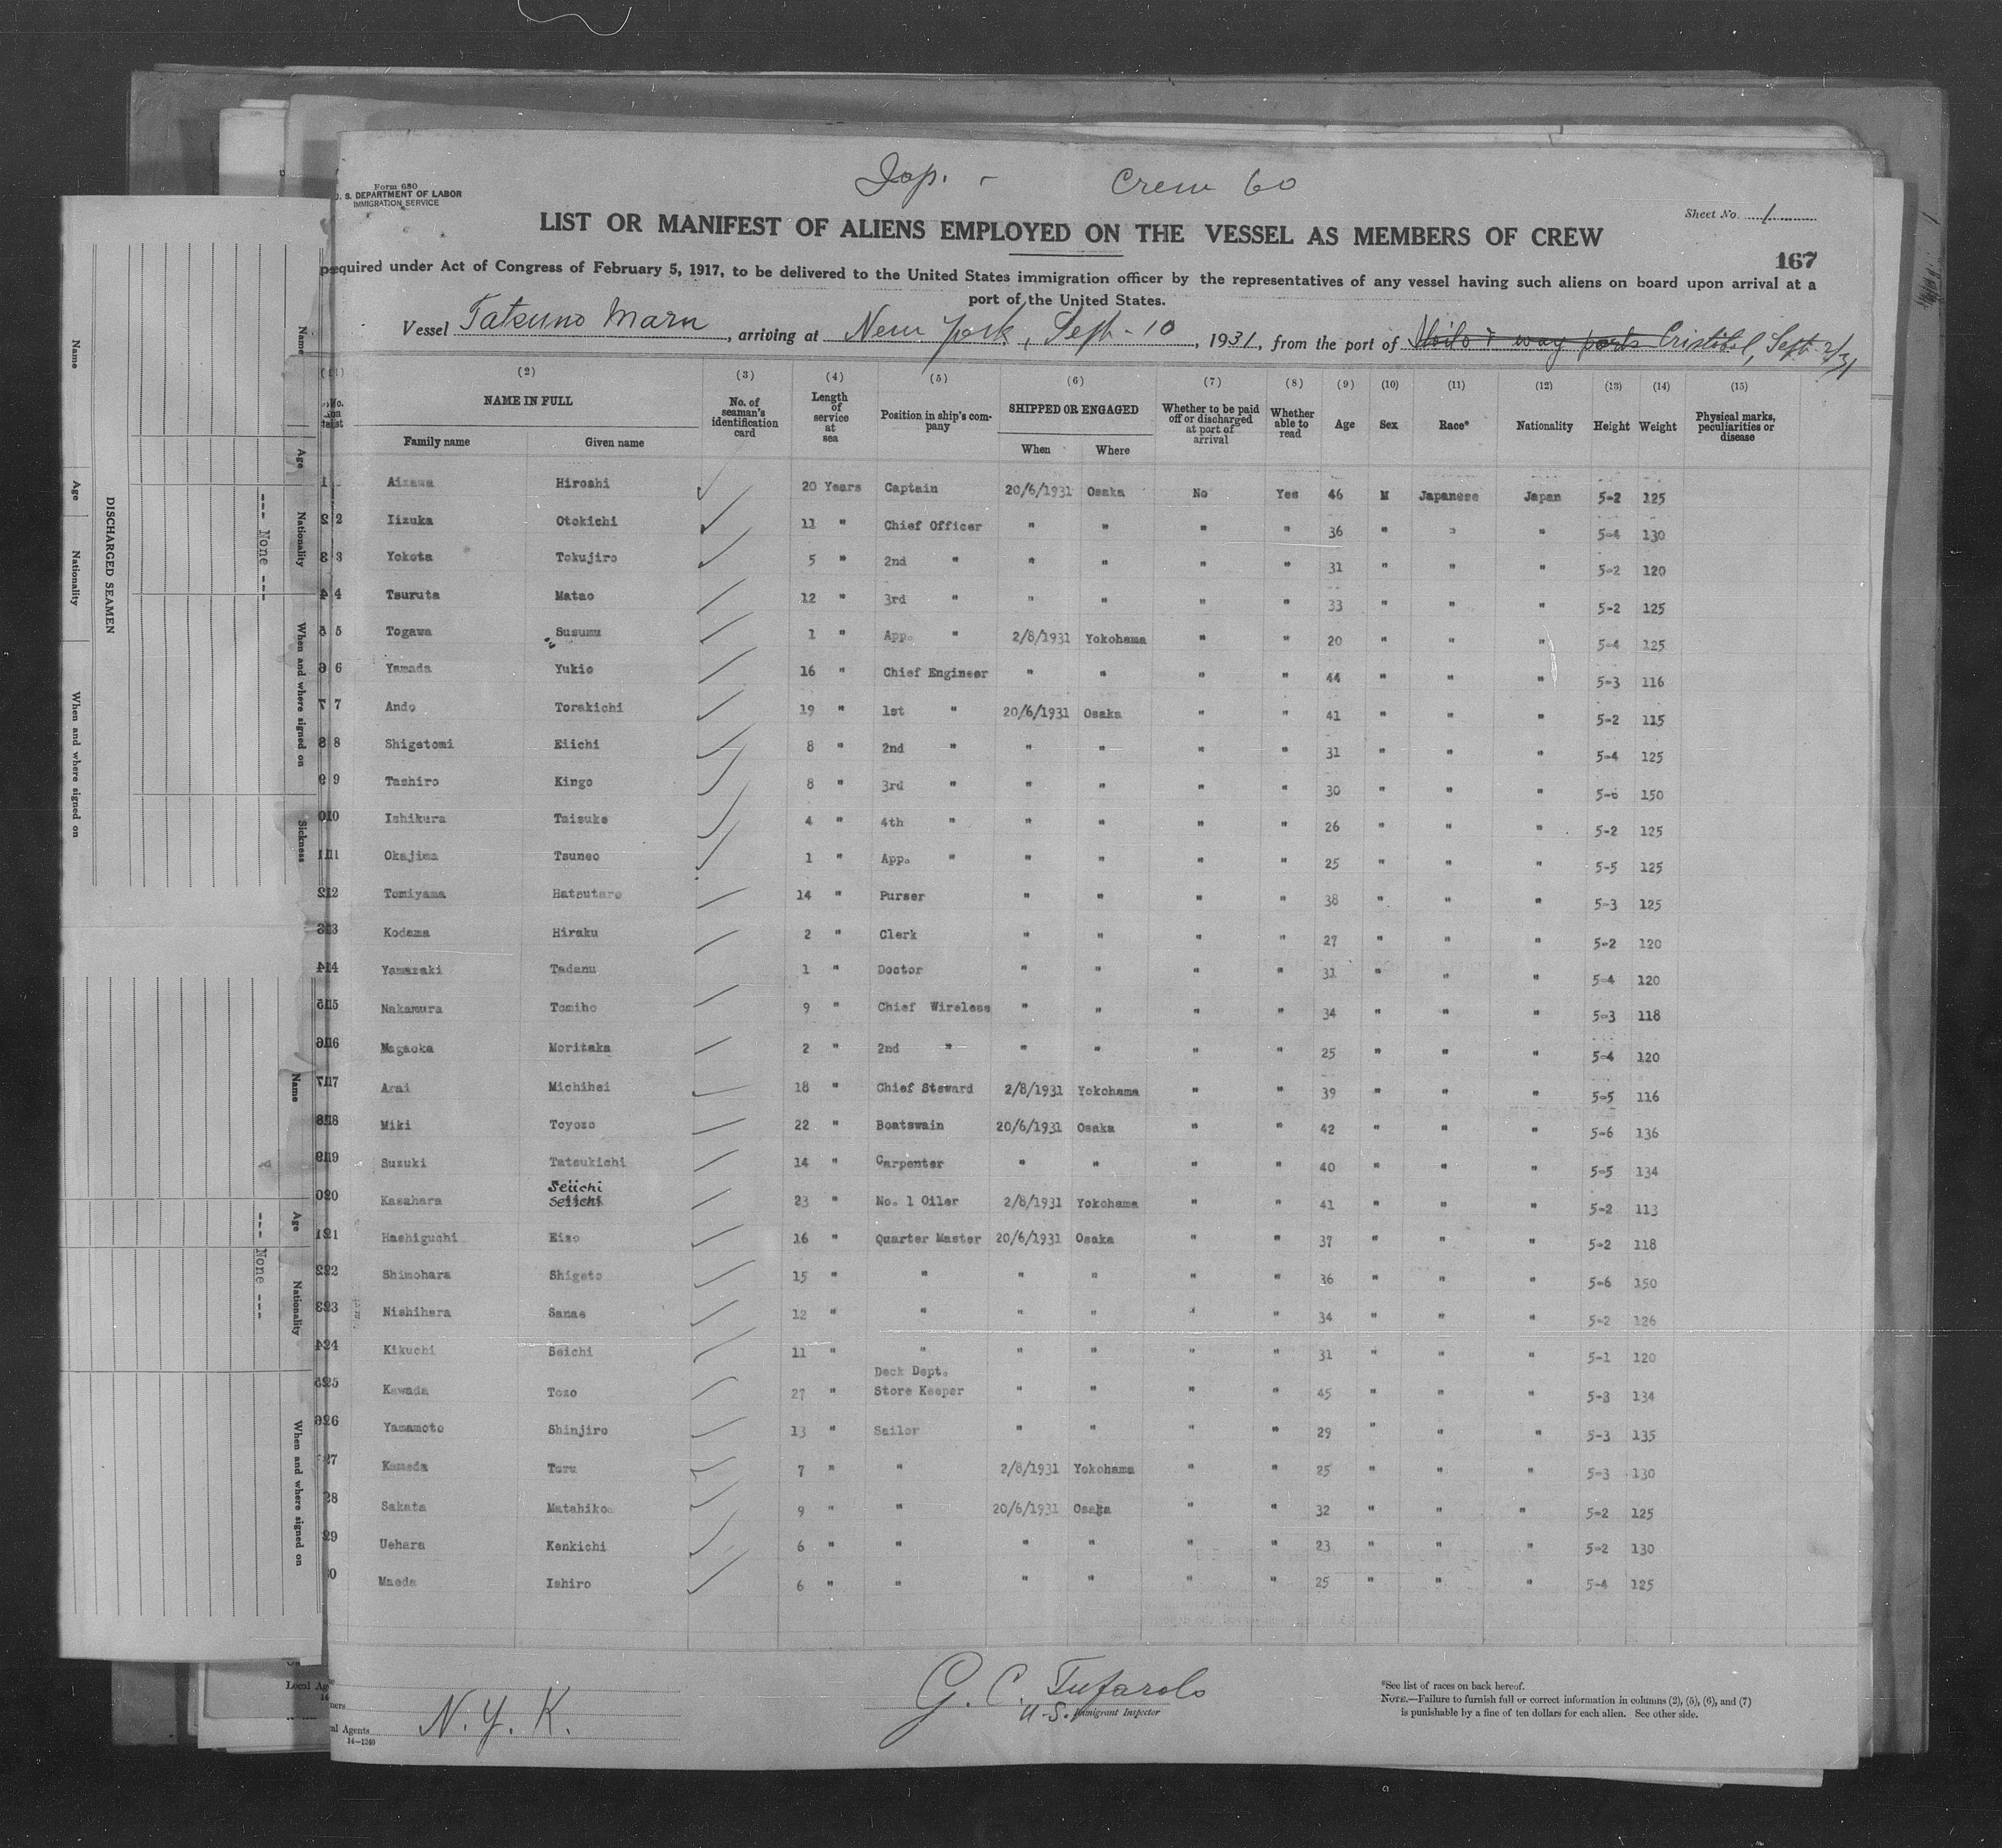 Jap. - Crew 60
Form 680
U. S. DEPARTMENT OF LABOR
IMMIGRATION SERVICE
Sheet No. 1
LIST OR MANIFEST OF ALIENS EMPLOYED ON THE VESSEL AS MEMBERS OF CREW
167
equired under Act of Congress of February 5, 1917, to be delivered to the United States immigration officer by the representatives of any vessel having such aliens on board upon arrival at a
port of the United States.
Vessel Tatsuno Maru, arriving at New York, Sept - 10, 1931, from the port of Iloilo & way ports Cristobal, Sept 2/31
(2) (3) (4) (5) (6) (7) (8) (9) (10) (11) (12) (13) (14) (15)
NAME IN FULL
Family name Given name
No. of seaman's identification card
Length of service at sea
Position in ship's company
SHIPPED OR ENGAGED
When Where
Whether to be paid off or discharged at port of arrival
Whether able to read
Age Sex Race* Nationality Height Weight
Physical marks, peculiarities or disease
1 Aizawa Hiroshi 20 Years Captain 20/6/1931 Osaka No Yes 46 M Japanese Japan 5-2 125
2 Iizuka Otokichi 11 " Chief Officer " " " " 36 " " " 5-4 130
3 Yokota Tokujiro 5 " 2nd " " " " " 31 " " " 5-2 120
4 Tsuruta Matao 12 " 3rd " " " " " 33 " " " 5-2 125
5 Togawa Susumu 1 " App. " 2/8/1931 Yokohama " " 20 " " " 5-4 125
6 Yamada Yukio 16 " Chief Engineer " " " " 44 " " " 5-3 116
7 Ando Torakichi 19 " 1st " 20/6/1931 Osaka " " 41 " " " 5-2 115
8 Shigetomi Eiichi 8 " 2nd " " " " " 31 " " " 5-4 125
9 Tashiro Kingo 8 " 3rd " " " " " 30 " " " 5-6 150
10 Ishikura Taisuke 4 " 4th " " " " " 26 " " " 5-2 125
11 Okajima Tsuneo 1 " App. " " " " " 25 " " " 5-5 125
12 Tomiyama Hatsutaro 14 " Purser " " " " 38 " " " 5-3 125
13 Kodama Hiraku 2 " Clerk " " " " 27 " " " 5-2 120
14 Yamazaki Tadanu 1 " Doctor " " " " 31 " " " 5-4 120
15 Nakamura Tomiho 9 " Chief Wireless " " " " 34 " " " 5-3 118
16 Nagaoka Moritaka 2 " 2nd " " " " " 25 " " " 5-4 120
17 Arai Michihei 18 " Chief Steward 2/8/1931 Yokohama " " 39 " " " 5-5 116
18 Miki Toyozo 22 " Boatswain 20/6/1931 Osaka " " 42 " " " 5-6 136
19 Suzuki Tatsukichi 14 " Carpenter " " " " 40 " " " 5-5 134
Seiichi
20 Kasahara Seiichi 23 " No. 1 Oiler 2/8/1931 Yokohama " " 41 " " " 5-2 113
21 Hashiguchi Eizo 16 " Quarter Master 20/6/1931 Osaka " " 37 " " " 5-2 118
22 Shimohara Shigeto 15 " " " " " " 36 " " " 5-6 150
23 Nishihara Sanae 12 " " " " " " 34 " " " 5-2 126
24 Kikuchi Seichi 11 " " " " " " 31 " " " 5-1 120
Deck Dept.
25 Kawada Tozo 27 " Store Keeper " " " " 45 " " " 5-3 134
26 Yamamoto Shinjiro 13 " Sailor " " " " 29 " " " 5-3 135
27 Kameda Toru 7 " " 2/8/1931 Yokohama " " 25 " " " 5-3 130
28 Sakata Matahiko 9 " " 20/6/1931 Osaka " " 32 " " " 5-2 125
29 Uehara Kenkichi 6 " " " " " " 23 " " " 5-2 130
0 Maeda Ishiro 6 " " " " " " 25 " " " 5-4 125
N. Y. K.
G. C. Tufarolo
U.S. Immigrant Inspector
*See list of races on back hereof.
NOTE.—Failure to furnish full or correct information in columns (2), (5), (6), and (7)
is punishable by a fine of ten dollars for each alien. See other side.
al Agents
14—1240
Local Ag
DISCHARGED SEAMEN
Name Age Nationality When and where signed on
Name Age Nationality When and where signed on Sickness
--- None ---
Name Age Nationality When and where signed on
--- None ---